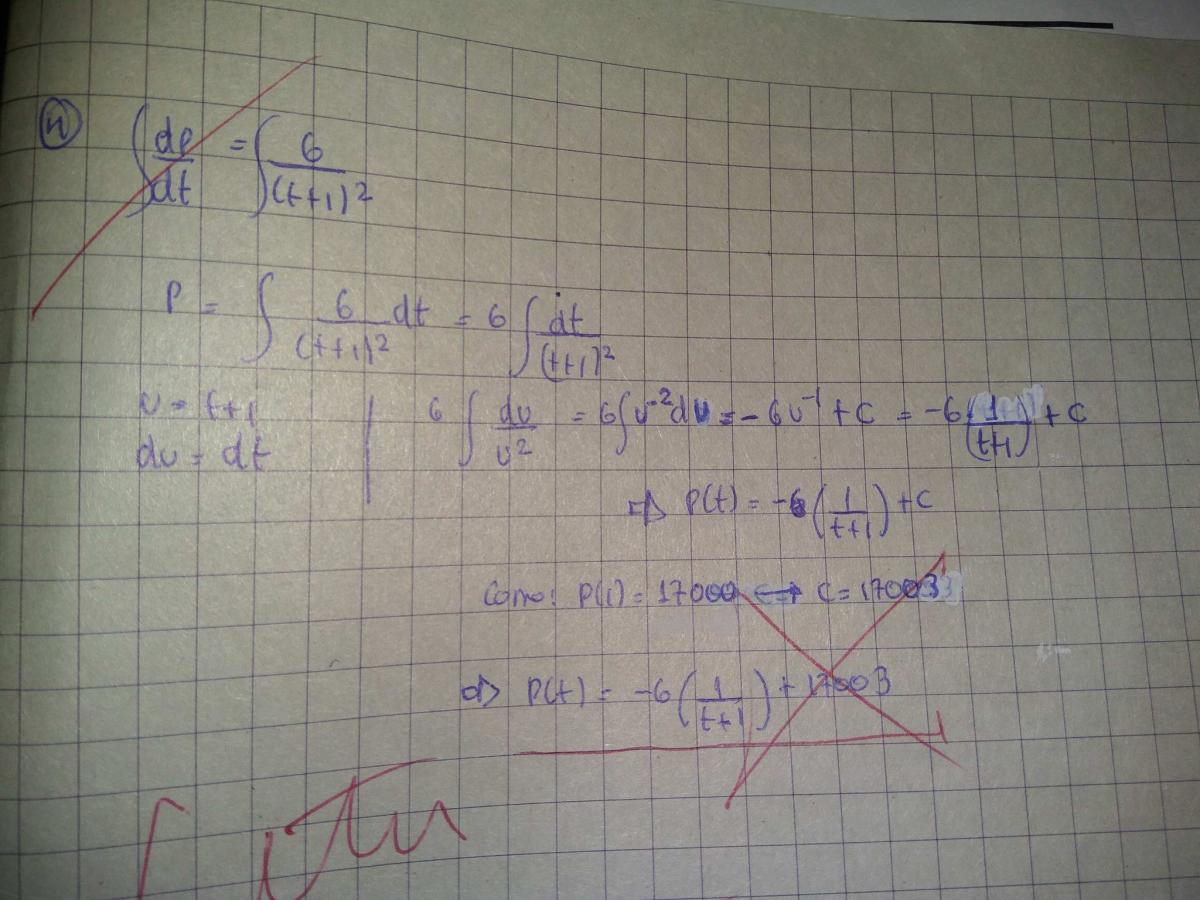 ④ ∫ dp/dt = ∫ 6/(t+1)²
P = ∫ 6/(t+1)² dt = 6 ∫ dt/(t+1)²
u = t+1 | 6 ∫ du/u² = 6∫u⁻²du = -6u⁻¹ + C = -6(1/(t+1)) + C
du = dt
⇒ P(t) = -6(1/(t+1)) + C
Como: P(1) = 17000 ⟷ C = 17003
⇒ P(t) = -6(1/(t+1)) + 17003